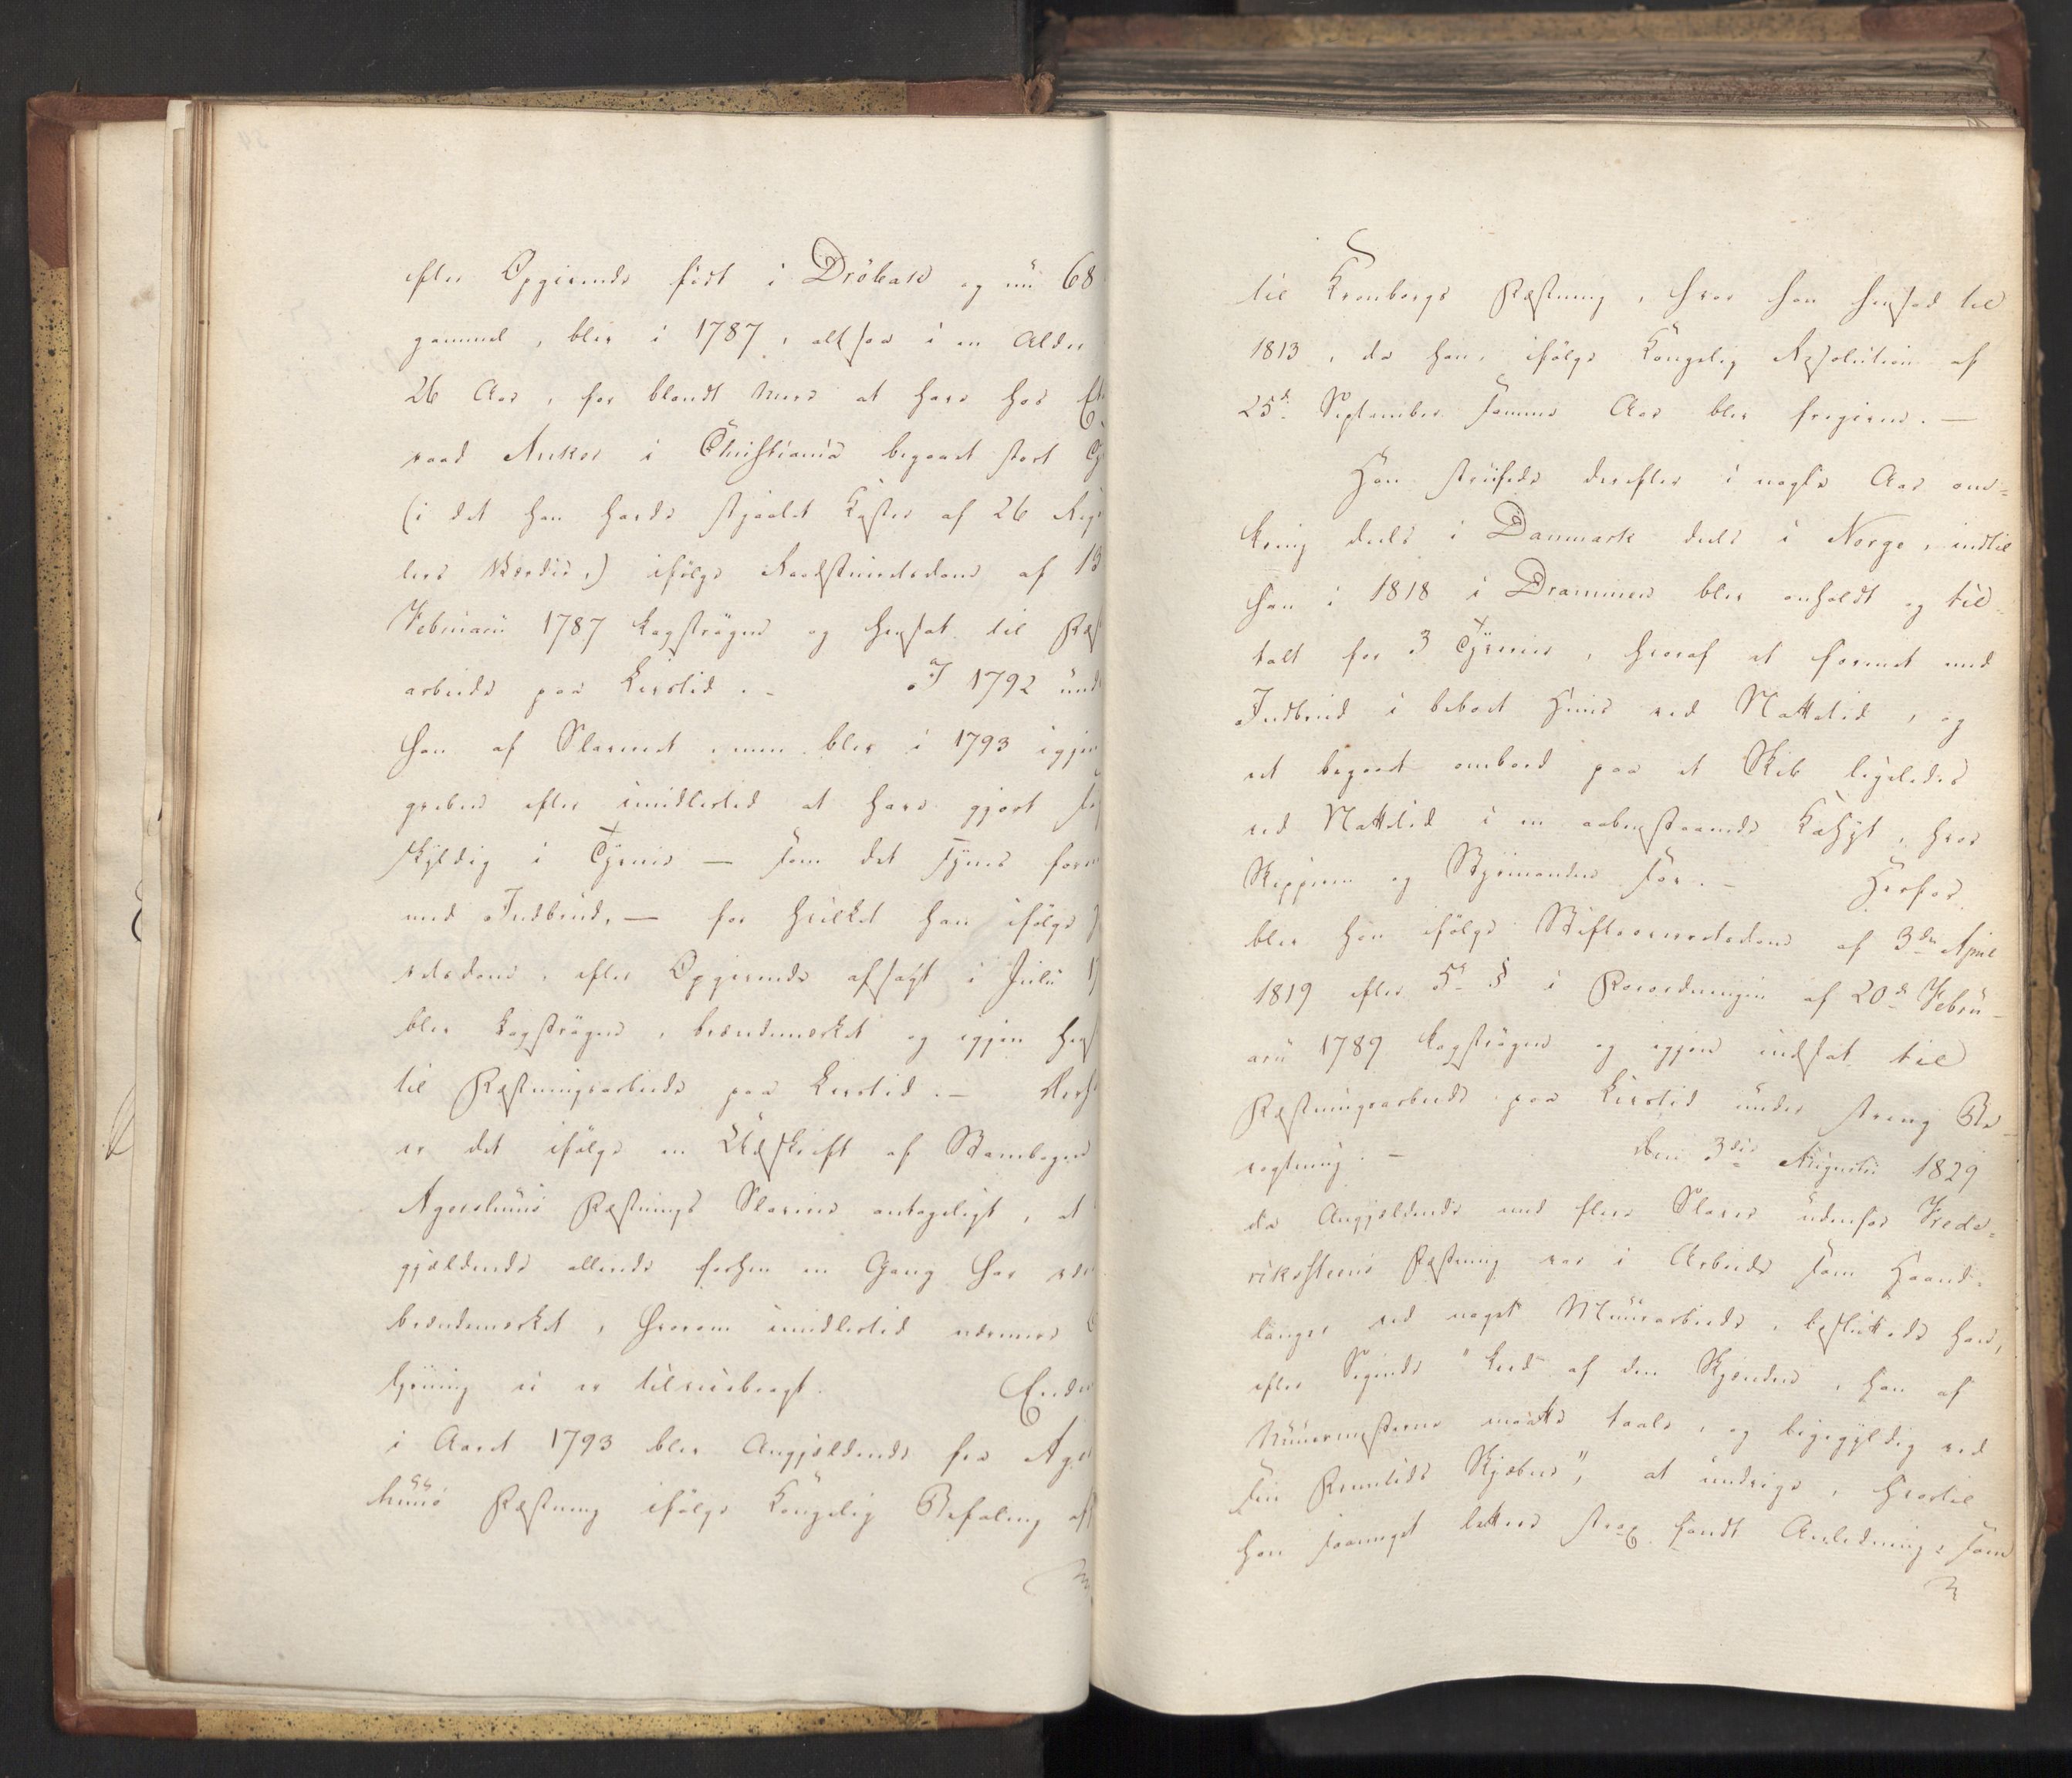 efter Opgivende född i Dröbak og nu 68
gammel, blev i 1787, altsaa i en Alder
26 Aar, for blandt mere at have hos Et
raad Anker i Christiania begaaet stort Ty
(i det han havde stjaalet Koster af 26 Rigs
lers Værdie,) ifölge Raadstuerets dom af 13
Februarii 1787 kagströgen og hensat til Fæst
arbeide paa Livstid. - I 1792 und
han af Slaveriet, men blev i 1793 igjen
greben efter imidlertid at have gjort si
skyldig i Tyverie — som det synes forn
med Indbrud, — for hvilket han ifölge
retsdom, efter Opgivende afsagt i Julii 17
blev kagströgen, brændemærket og igjen hens
til Fæstningsarbeide paa Livstid. -
er det ifölge en Udskrift af Stambogen
Agershuus Fæstnings Slaverie antageligt, at
gjældende allerede forhen en Gang har været
brændemærket, hvorom imidlertid nærmere
lysning ei er tilveiebragt. Ende
i Aaret 1793 blev Angjældende fra Ager
huus Fæstning ifölge Kongelig Befaling afs
til Kronborgs Fæstning, hvor han hensad til
1813, da han, ifölge Kongelig Resolution af
25de September samme Aar blev frigiven. —
Han streifede derefter i nogle Aar om=
kring deels i Danmark deels i Norge, indtil
han i 1818 i Drammen blev anholdt og til=
talt for 3 Tyverier, hvoraf et forövet med
Indbrud i beboet Huus ved Nattetid, og
et begaaet ombord paa et Skib ligeledes
ved Nattetid i en aabenstaaende Kahyt, hvor
Skipperen og Styrmanden sov. - Herfor
blev han ifölge Stiftsoverretsdom af 3die April
1819 efter 5te § i Forordningen af 20de Febru=
arii 1789 kagströgen og igjen indsat til
Fæstningsarbeide paa Livstid under streng Be=
vogtning. - Den 3die Augusti 1829
da Angjældende med flere Slaver udenfor Frede=
riksteens Fæstning var i Arbeide som Haand=
langer ved noget Muurarbeide, besluttede han,
efter Sigende "leed af den Skjenden, han af
Muurmesteren maatte taale, og ligegyldig ved
sin Fremtids Skjebne", at undvige, hvortil
han saameget lettere strax fandt Anledning, som